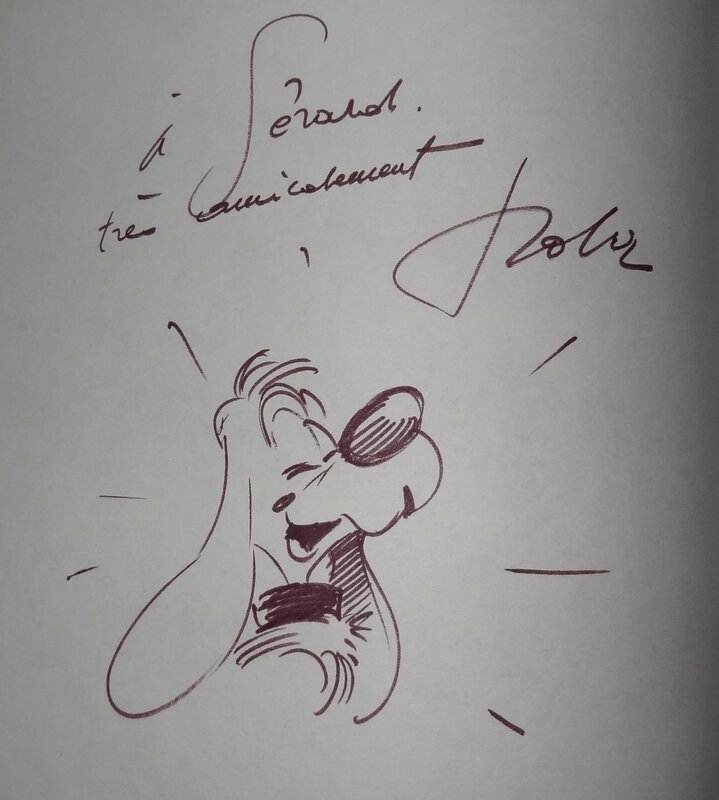 à Gérard.
très amicalement
Roba